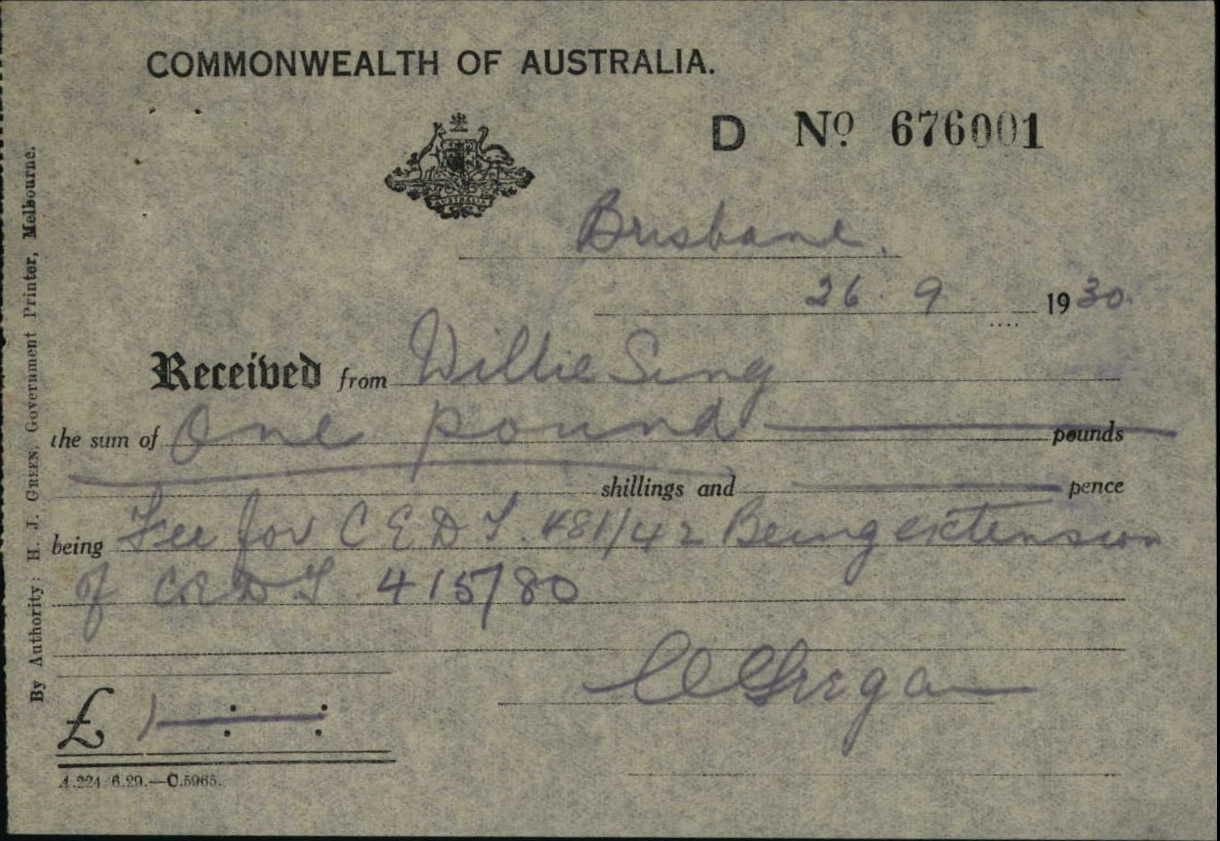 COMMONWEALTH OF AUSTRALIA.
D Nº 676001
AUSTRALIA
Brisbane.
26. 9 1930.
Received from Willie Sing
the sum of One pound pounds
shillings and pence
being Fee for C E D T. 481/42 Being extension
of C E D T 415/80
£ 1 : :
A.224/6.29.—C.5965.
By Authority: H. J. GREEN, Government Printer, Melbourne.